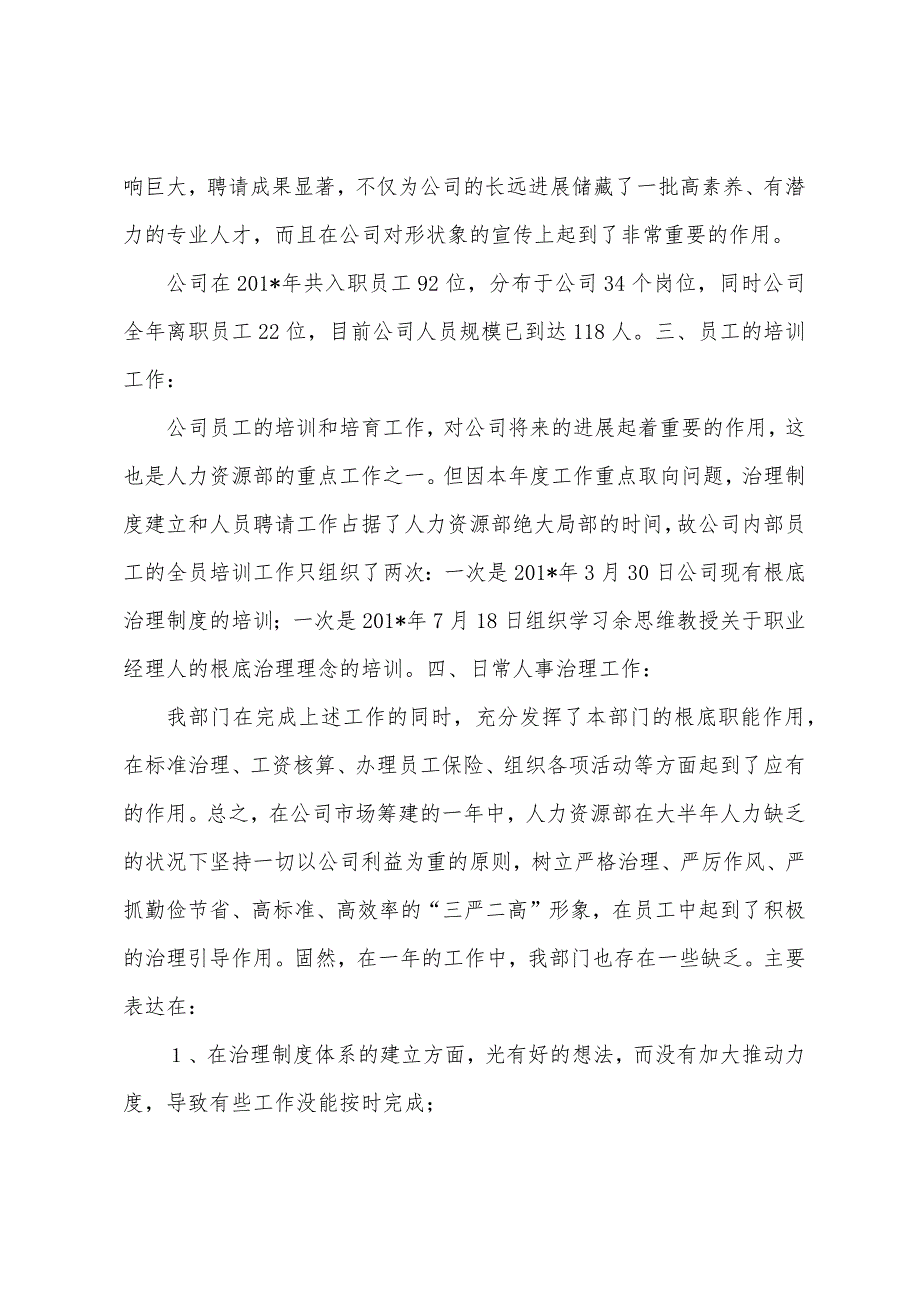 响巨大，聘请成果显著，不仅为公司的长远进展储藏了一批高素养、有潜
力的专业人才，而且在公司对形状象的宣传上起到了非常重要的作用。
公司在 201*年共入职员工 92 位，分布于公司 34 个岗位，同时公司
全年离职员工 22 位，目前公司人员规模已到达 118 人。三、员工的培训
工作：
公司员工的培训和培育工作，对公司将来的进展起着重要的作用，这
也是人力资源部的重点工作之一。但因本年度工作重点取向问题，治理制
度建立和人员聘请工作占据了人力资源部绝大局部的时间，故公司内部员
工的全员培训工作只组织了两次：一次是 201*年 3 月 30 日公司现有根底
治理制度的培训；一次是 201*年 7 月 18 日组织学习余思维教授关于职业
经理人的根底治理理念的培训。四、日常人事治理工作：
我部门在完成上述工作的同时，充分发挥了本部门的根底职能作用，
在标准治理、工资核算、办理员工保险、组织各项活动等方面起到了应有
的作用。总之，在公司市场筹建的一年中，人力资源部在大半年人力缺乏
的状况下坚持一切以公司利益为重的原则，树立严格治理、严厉作风、严
抓勤俭节省、高标准、高效率的“三严二高”形象，在员工中起到了积极
的治理引导作用。固然，在一年的工作中，我部门也存在一些缺乏。主要
表达在：
１、在治理制度体系的建立方面，光有好的想法，而没有加大推动力
度，导致有些工作没能按时完成；